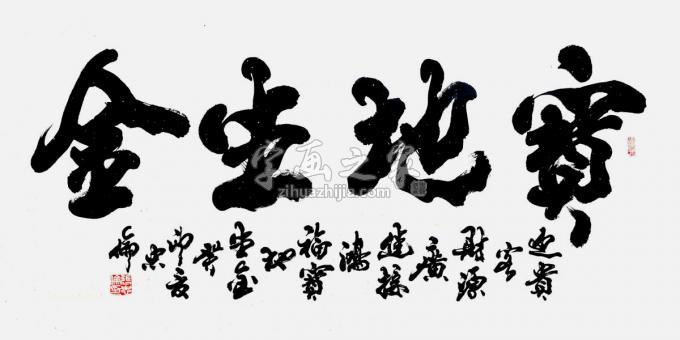 寶地生金
迎貴
客
財源
廣
進接
鴻
福寶
地
生金
癸
卯夏
忠
字画之家
zihuazhijia.com